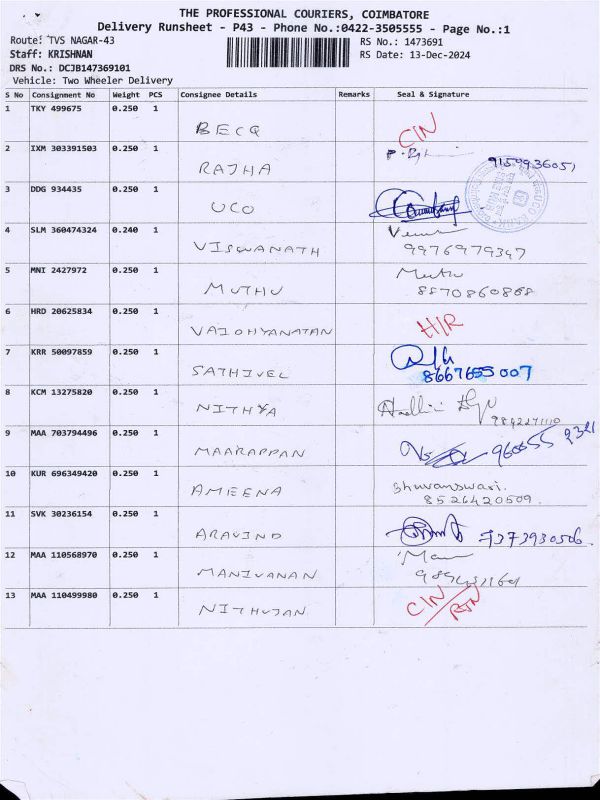 THE PROFESSIONAL COURIERS, COIMBATORE
Delivery Runsheet - P43 - Phone No.:0422-3505555 - Page No.:1
Route: TVS NAGAR-43
RS No.: 1473691
Staff: KRISHNAN
RS Date: 13-Dec-2024
DRS No.: DCJB147369101
Vehicle: Two Wheeler Delivery
S No Consignment No Weight PCS Consignee Details Remarks Seal & Signature
1 TKY 499675 0.250 1 BECQ CIN
2 IXM 303391503 0.250 1 RAJHA 9150936051
3 DDG 934435 0.250 1 UCO
4 SLM 360474324 0.240 1 VISWANATH 9976979347
5 MNI 2427972 0.250 1 MUTHU Muthu 8870860868
6 HRD 20625834 0.250 1 VAIDHYANATAN H/R
7 KRR 50097859 0.250 1 SATHIVEL 8667655007
8 KCM 13275820 0.250 1 NITHYA 9842271110
9 MAA 703794496 0.250 1 MAARAPPAN
10 KUR 696349420 0.250 1 AMEENA Bhuvanswari. 8526420509.
11 SVK 30236154 0.250 1 ARAVIND 7373930506.
12 MAA 110568970 0.250 1 MANIVANAN
13 MAA 110499980 0.250 1 NITHUJAN CIN/RTN